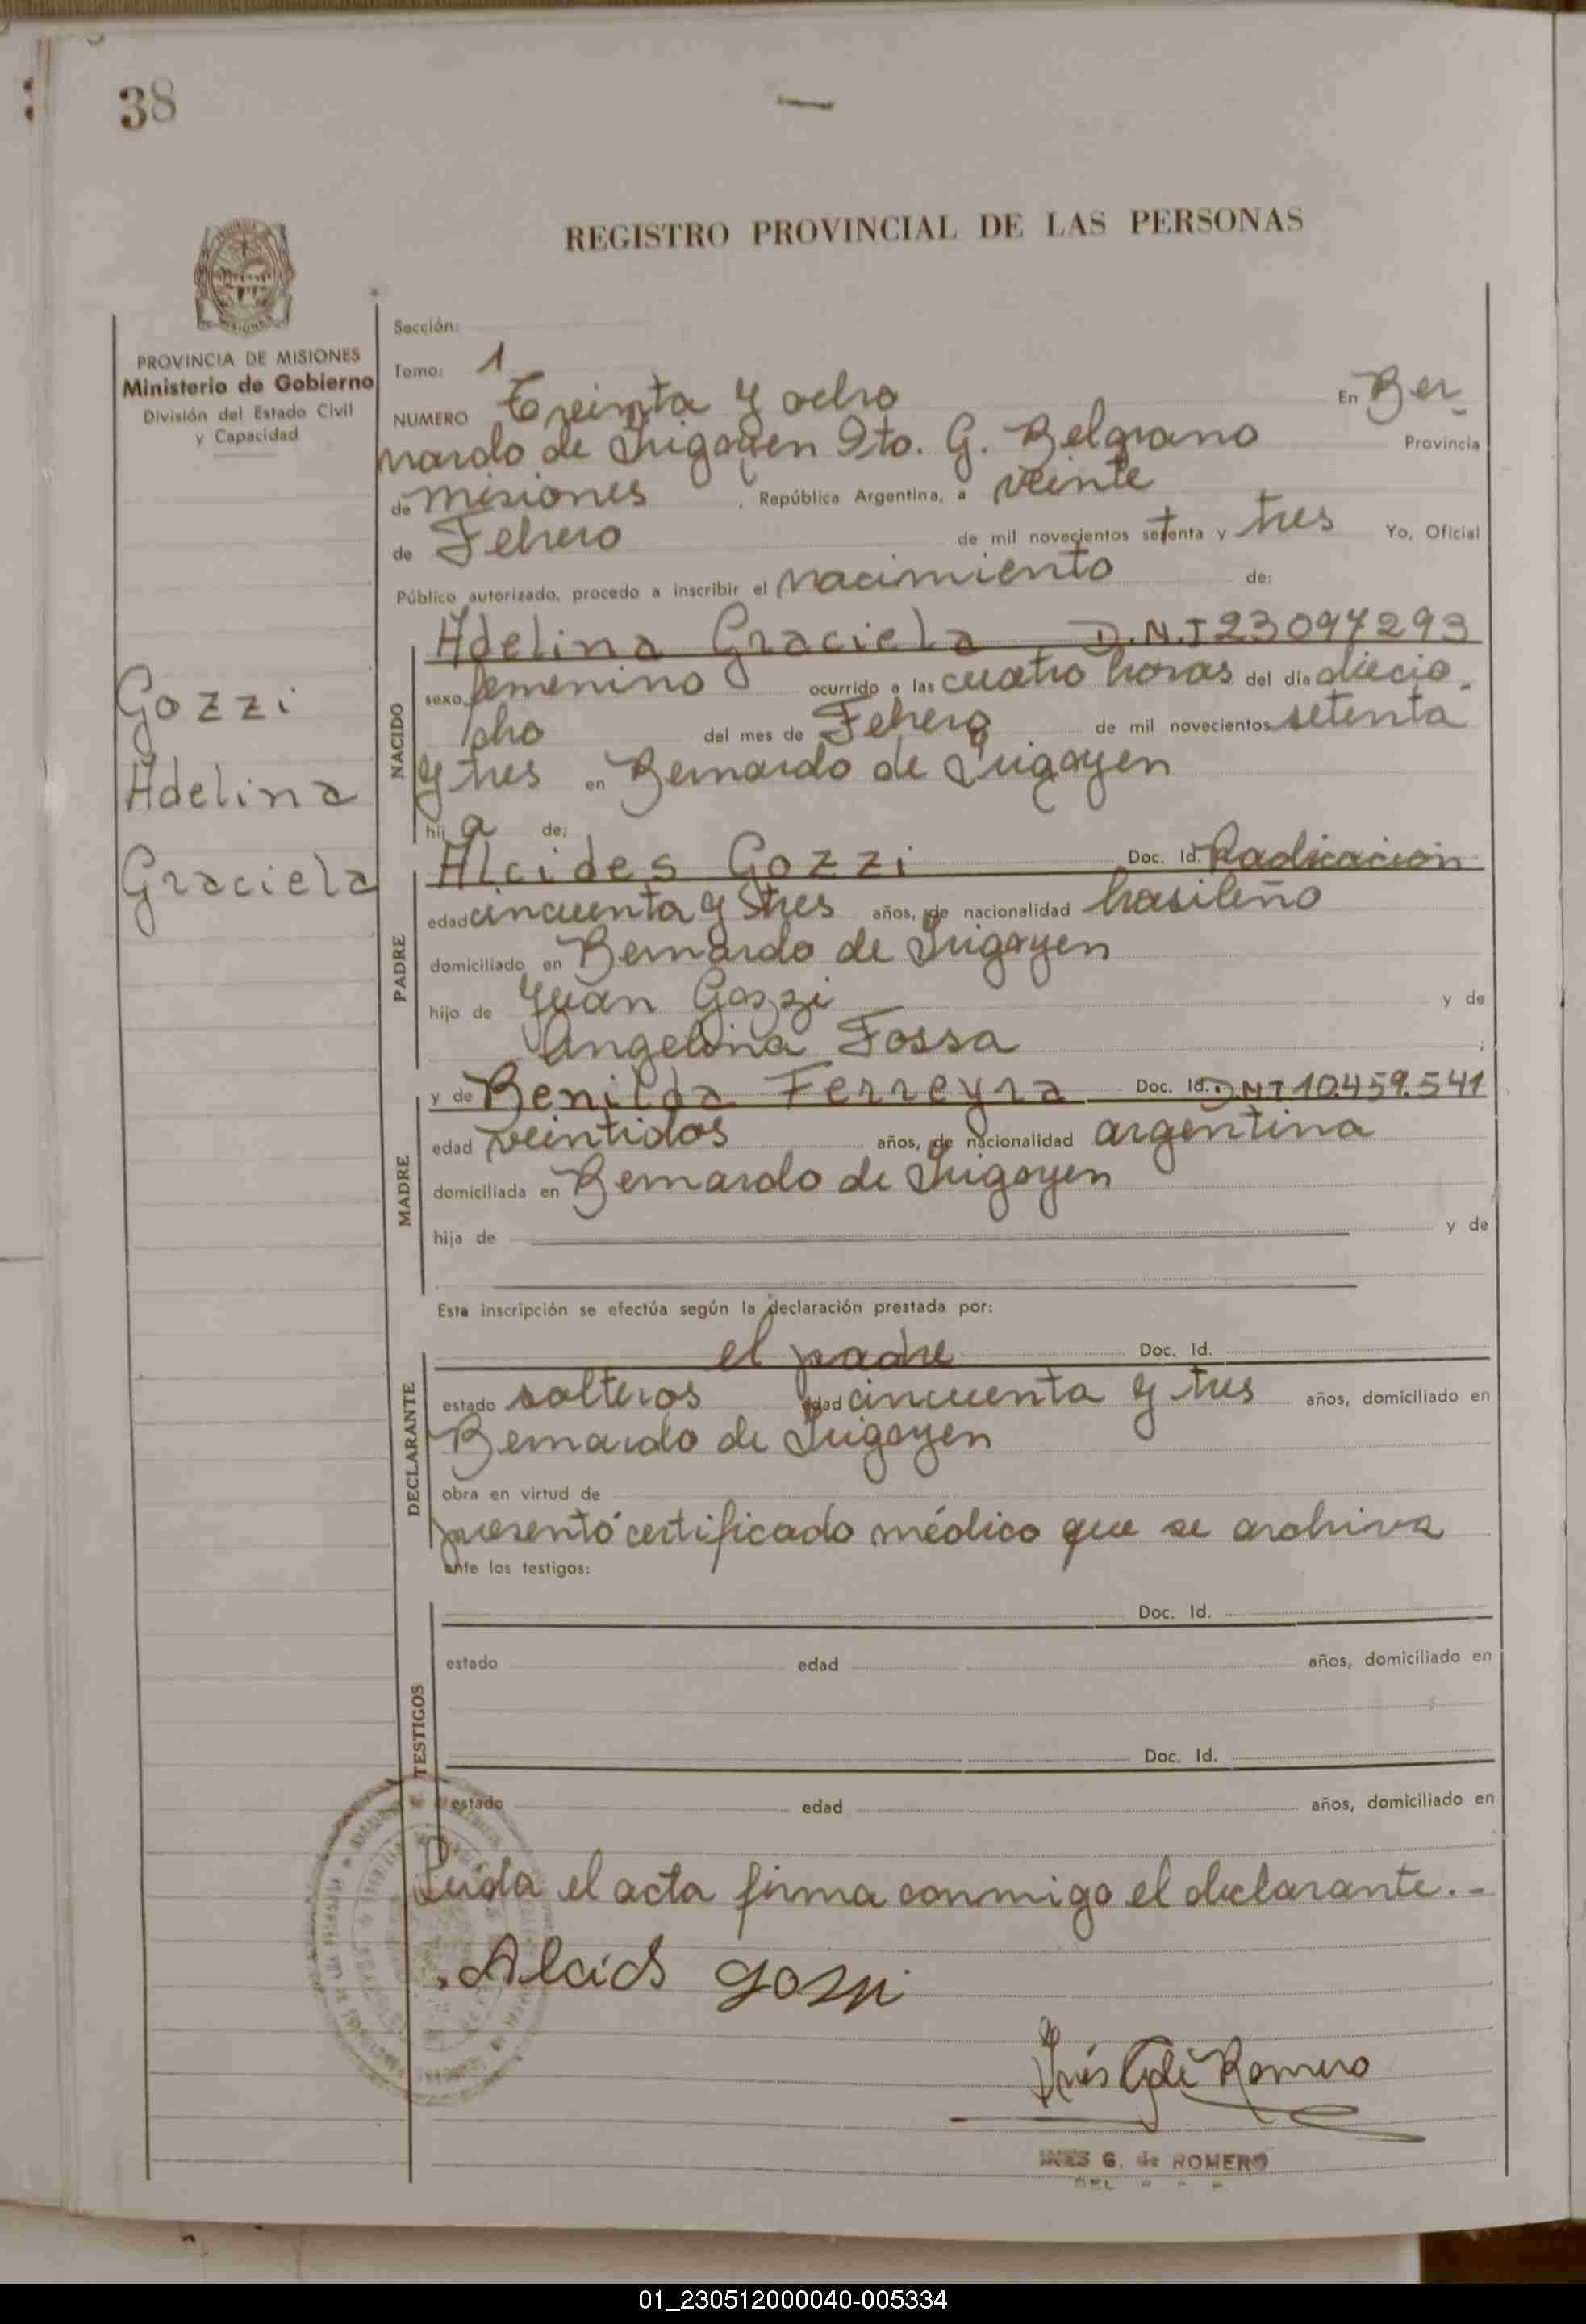 38
REGISTRO PROVINCIAL DE LAS PERSONAS
PROVINCIA DE MISIONES
Ministerio de Gobierno
División del Estado Civil
y Capacidad
Gozzi
Adelina
Graciela
Sección:
Tomo: 1
NUMERO Treinta y ocho En Ber_
nardo de Irigoyen Dto. G. Belgrano Provincia
de Misiones , República Argentina, a veinte
de Febrero de mil novecientos setenta y tres Yo, Oficial
Público autorizado, procedo a inscribir el nacimiento de:
NACIDO
Adelina Graciela D.N.I 23097293
sexo femenino ocurrido a las cuatro horas del día diecio_
cho del mes de Febrero de mil novecientos setenta
y tres en Bernardo de Irigoyen
hij a de:
PADRE
Alcides Gozzi Doc. Id. Radicación
edad cincuenta y tres años, de nacionalidad brasileño
domiciliado en Bernardo de Irigoyen
hijo de Juan Gozzi y de
Angelina Fossa ;
MADRE
y de Benilda Ferreyra Doc. Id. D.N.I 10.459.541
edad veintidos años, de nacionalidad argentina
domiciliada en Bernardo de Irigoyen
hija de y de
Esta inscripción se efectúa según la declaración prestada por:
DECLARANTE
el padre Doc. Id.
estado solteros edad cincuenta y tres años, domiciliado en
Bernardo de Irigoyen
obra en virtud de
presentó certificado médico que se archiva
ante los testigos:
TESTIGOS
Doc. Id.
estado edad años, domiciliado en
Doc. Id.
estado edad años, domiciliado en
Leída el acta firma conmigo el declarante.-
Alcids gozzi
Inés G de Romero
INES G. de ROMERO
DEL
01_230512000040-005334